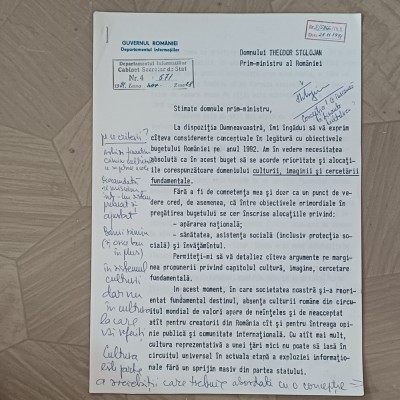 GUVERNUL ROMÂNIEI
Departamentul Informaţiilor
Domnului THEODOR STOLOJAN
Prim-ministru al României
Departamentul Informaţiilor
Cabinet Secretar de Stat
Nr. 4 571
Stimate domnule prim-ministru,
La dispoziţia Dumneavoastră, îmi îngădui să vă exprim
cîteva considerente concenţiale în legătură cu obiectivele
bugetului României pe anul 1992. Am în vedere necesitatea
absolută ca în acest buget să se acorde prioritate şi alocaţi-
ile corespunzătoare domeniului culturii, imaginii şi cercetării
fundamentale.
Fără a fi de competenţa mea şi doar ca un punct de ve-
dere cred, de asemenea, că între obiectivele primordiale în
pregătirea bugetului se cer înscrise alocaţiile privind:
- apărarea naţională;
- sănătatea, asistenţa socială (inclusiv protecţia so-
cială) şi învăţămîntul.
Permiteţi-mi să vă detaliez cîteva argumente pe margi-
nea promovării privind capitolul cultură, imagine, cercetare
fundamentală.
În acest moment, în care societatea noastră şi-a reori-
entat fundamental destinul, absenţa culturii române din circu-
itul mondial de valori apare de neînţeles şi de neacceptat
atît pentru creatorii din România cît şi pentru întreaga opi-
nie publică şi comunitate internaţională. Cu atît mai mult,
cultura reprezentativă a unei ţări mici nu poate să iasă în
circuitul universal în actuala etapă a exploziei informaţio-
nale fără un sprijin masiv din partea statului.
pe ce criterii?
în sistemul
culturii
dar nu
în cultură
la care
vă referiţi
Cultura
este parte
a societăţii care trebuie abordată cu o concepţie